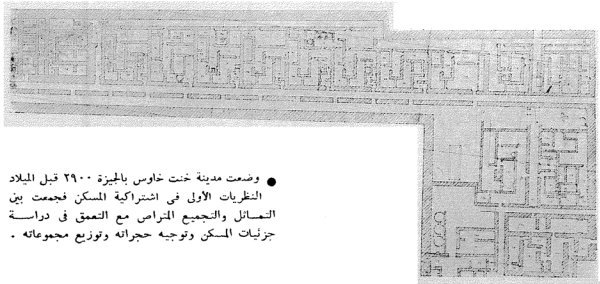 ● وضعت مدينة خنت خاوس بالجيزة ٢٩٠٠ قبل الميلاد
النظريات الأولى فى اشتراكية المسكن فجمعت بين
التماثل والتجميع المتراص مع التعمق فى دراسة
جزئيات المسكن وتوجيه حجراته وتوزيع مجموعاته .